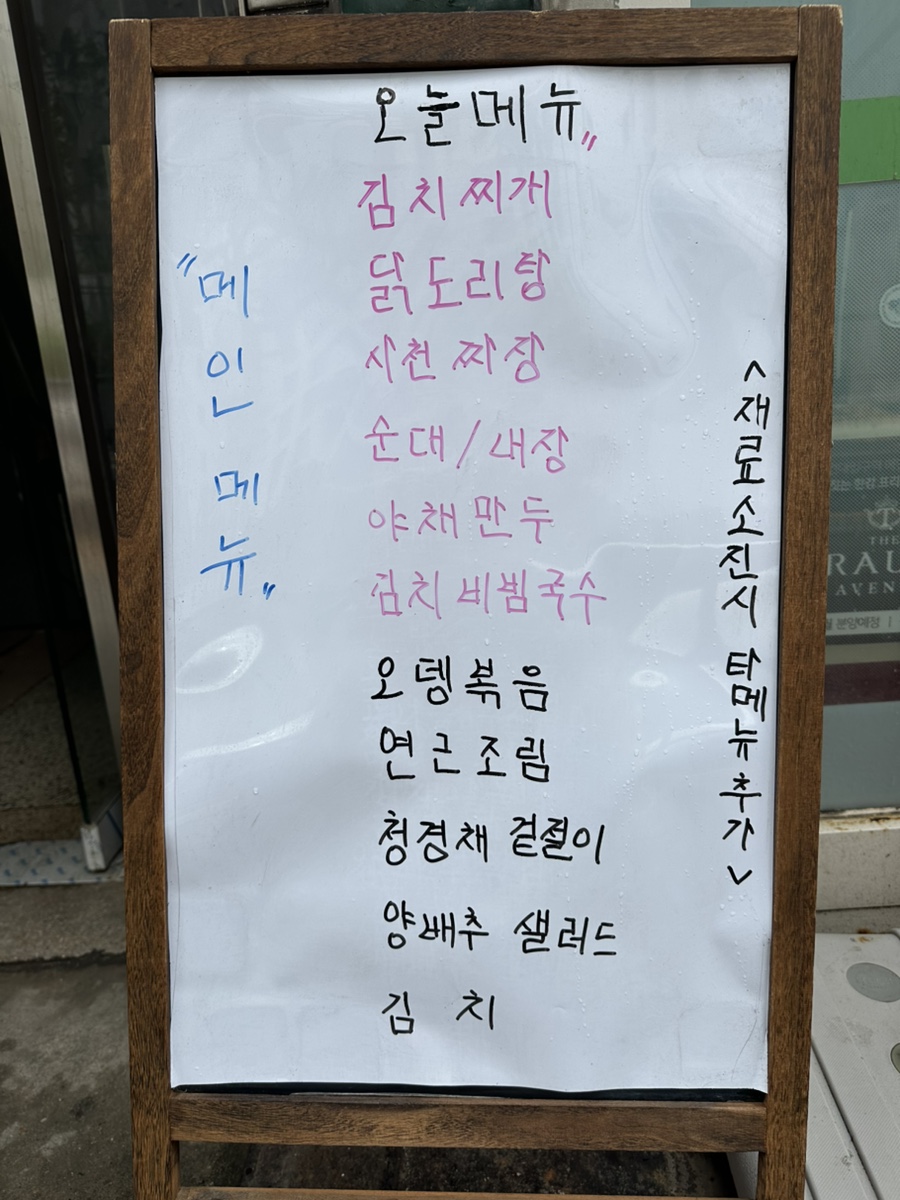 오늘메뉴"
김치찌개
닭도리탕
사천 짜장
순대/내장
야채만두
김치비빔국수
오뎅볶음
연근조림
청경채 겉절이
양배추 샐러드
김치
"메인메뉴"
<재료소진시 타메뉴추가>
THE
AVEN
분양예정